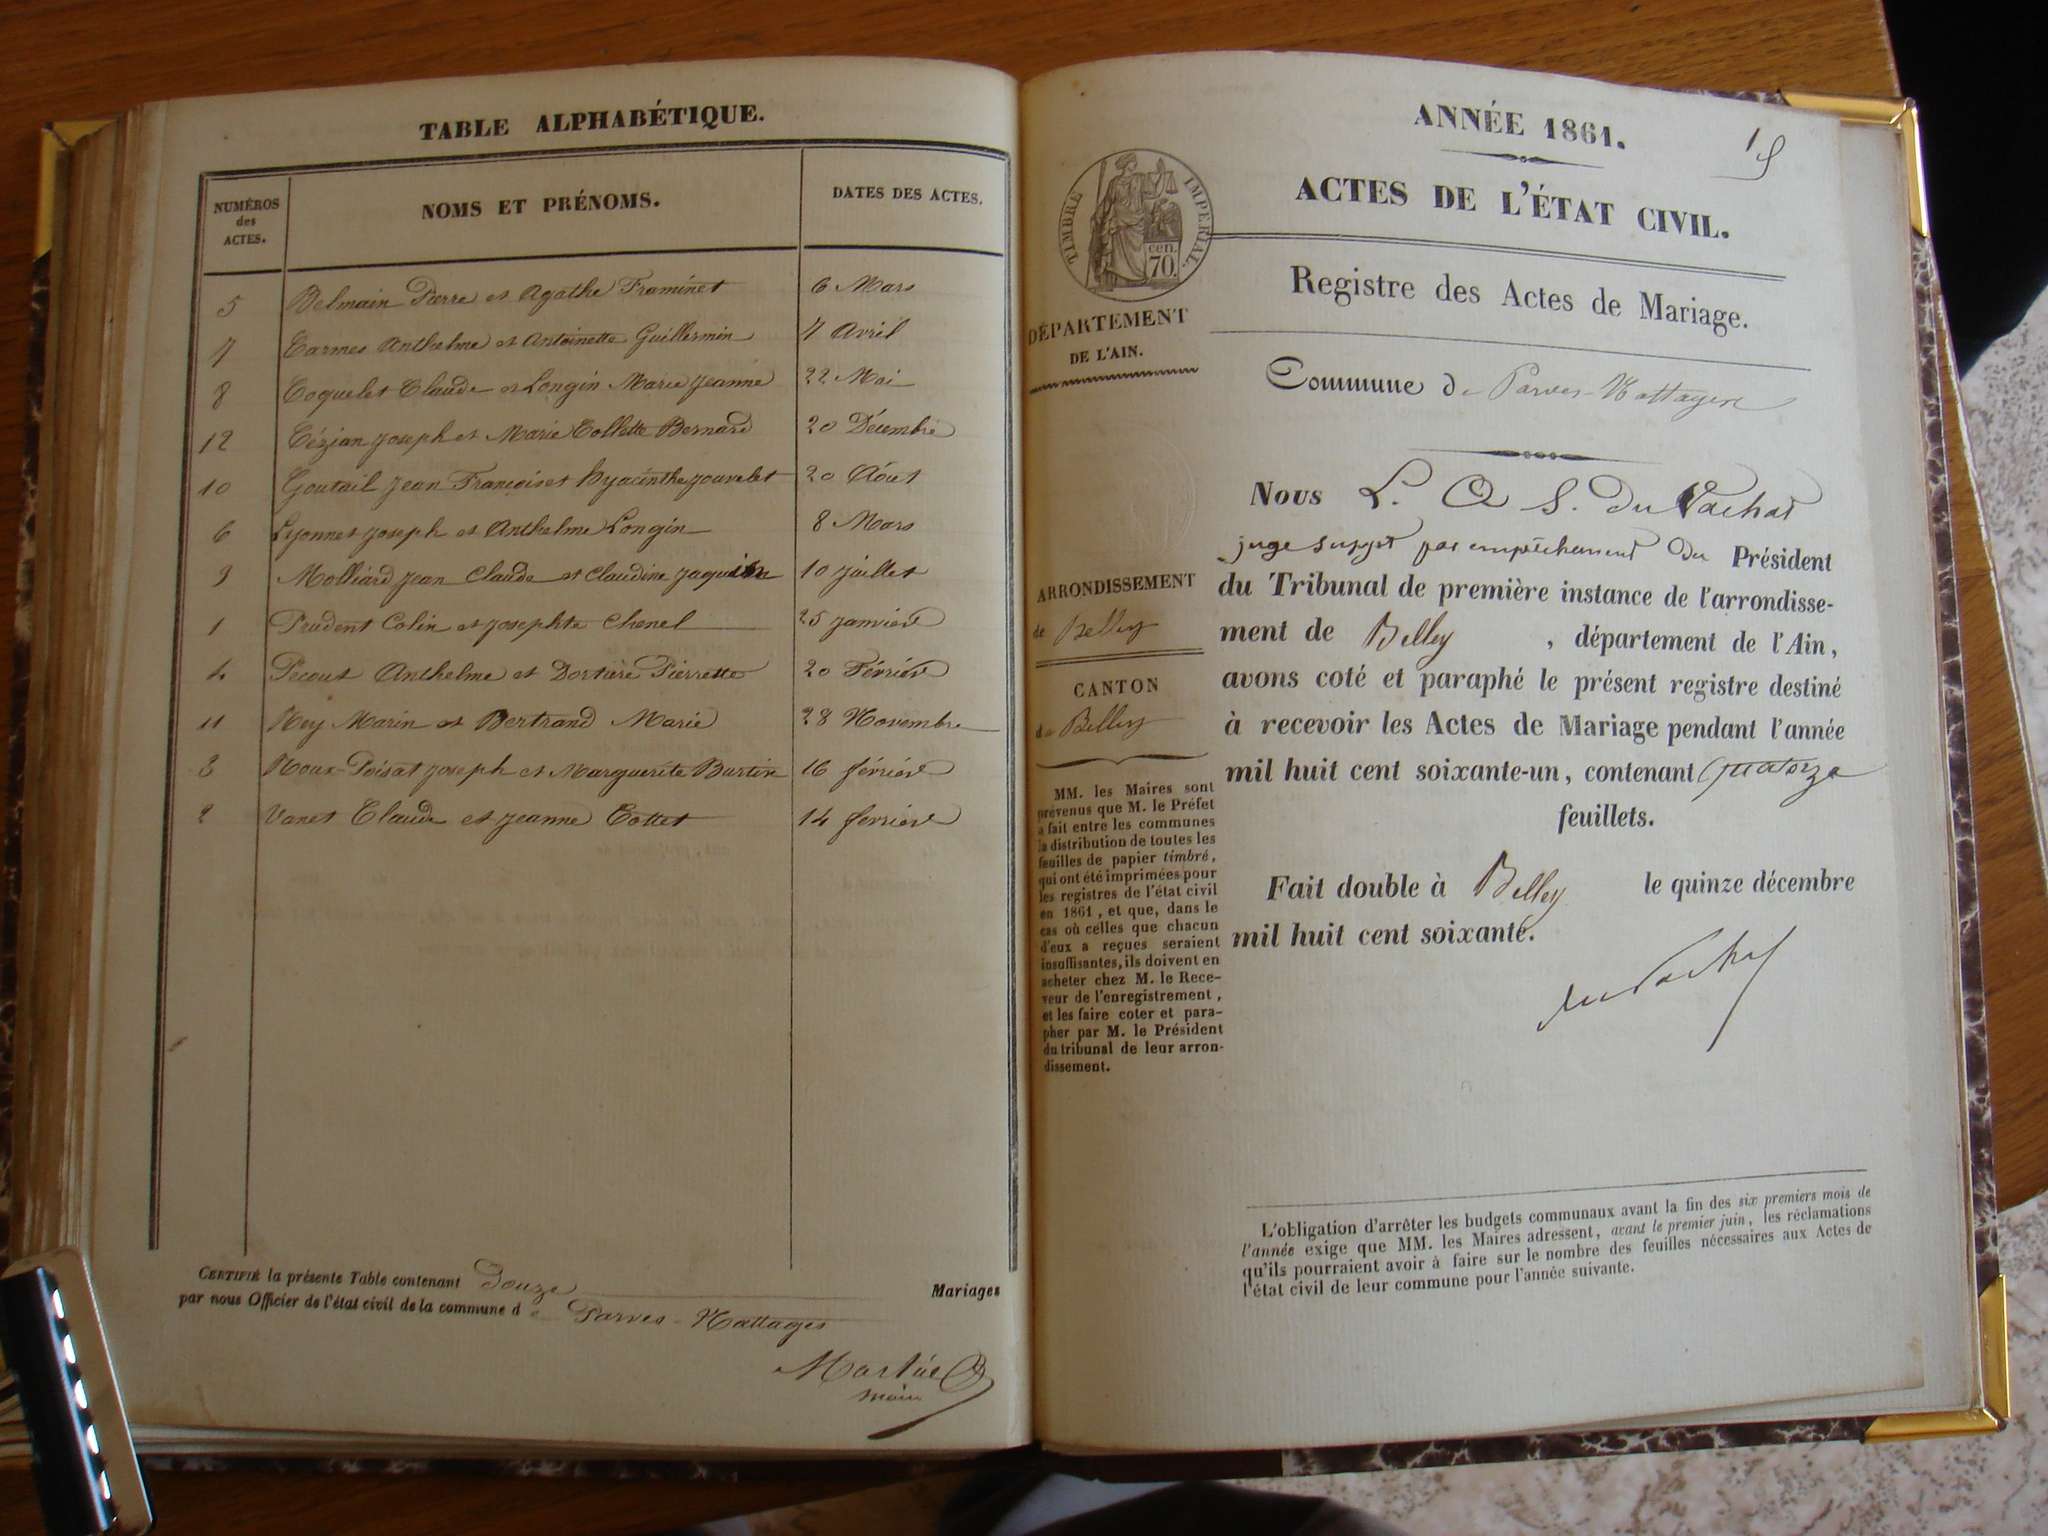 TABLE ALPHABÉTIQUE.
NUMÉROS des ACTES.
NOMS ET PRÉNOMS.
DATES DES ACTES.
5 Belmain Pierre et Agathe Framinet 6 Mars
7 Carmes Anthelme et Antoinette Guillermin 7 Avril
8 Coquelet Claude et Longin Marie Jeanne 22 Mai
12 Cézian Joseph et Marie Collette Bernard 20 Décembre
10 Goutail Jean François et Hyacinthe Jouvelet 20 Août
6 Lyonnet Joseph et Anthelme Longin 8 Mars
9 Molliard Jean Claude et Claudine Jaquin 10 Juillet
1 Prudent Colin et Josephte Chenel 25 Janvier
4 Pecout Anthelme et Dortière Pierrette 20 Février
11 Rey Marin et Bertrand Marie 28 Novembre
3 Roux-Poisat Joseph et Marguerite Burtin 16 février
2 Vanet Claude et Jeanne Cottet 14 fevrier
CERTIFIÉ la présente Table contenant Douze Mariages
par nous Officier de l'état civil de la commune de Parves-Nattages
maire
ANNÉE 1861.
1
ACTES DE L'ÉTAT CIVIL.
TIMBRE IMPERIAL.
cen.
70.
Registre des Actes de Mariage.
DÉPARTEMENT
DE L'AIN.
Commune de Parves-Nattages
Nous L. A S. Du Vachat
juge suppt par empêchement du Président
du Tribunal de première instance de l'arrondisse-
ment de Belley, département de l'Ain,
avons coté et paraphé le présent registre destiné
à recevoir les Actes de Mariage pendant l'année
mil huit cent soixante-un, contenant quatorze
feuillets.
Fait double à Belley le quinze décembre
mil huit cent soixante.
du Vachat
ARRONDISSEMENT
de Belley
CANTON
de Belley
MM. les Maires sont
prévenus que M. le Préfet
a fait entre les communes
la distribution de toutes les
feuilles de papier timbré,
qui ont été imprimées pour
les registres de l'état civil
en 1861, et que, dans le
cas où celles que chacun
d'eux a reçues seraient
insuffisantes, ils doivent en
acheter chez M. le Rece-
veur de l'enregistrement,
et les faire coter et para-
pher par M. le Président
du tribunal de leur arron-
dissement.
L'obligation d'arrêter les budgets communaux avant la fin des six premiers mois de
l'année exige que MM. les Maires adressent, avant le premier juin, les réclamations
qu'ils pourraient avoir à faire sur le nombre des feuilles nécessaires aux Actes de
l'état civil de leur commune pour l'année suivante.